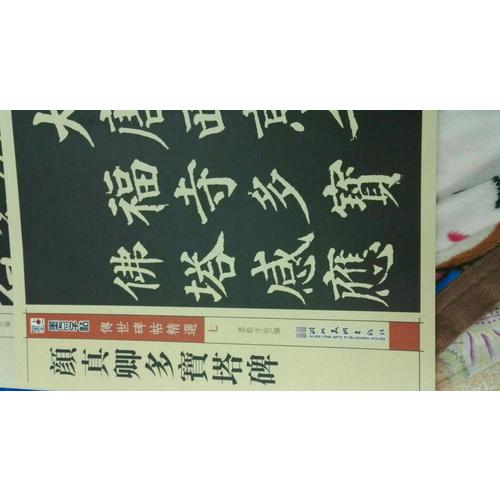 大唐
福寺多寶
佛塔感應
墨点字帖 傳世碑帖精選 七 墨點字帖編 湖北美術出版社
HUBEI FINE ARTS PUBLISHING HOUSE
顏真卿多寶塔碑